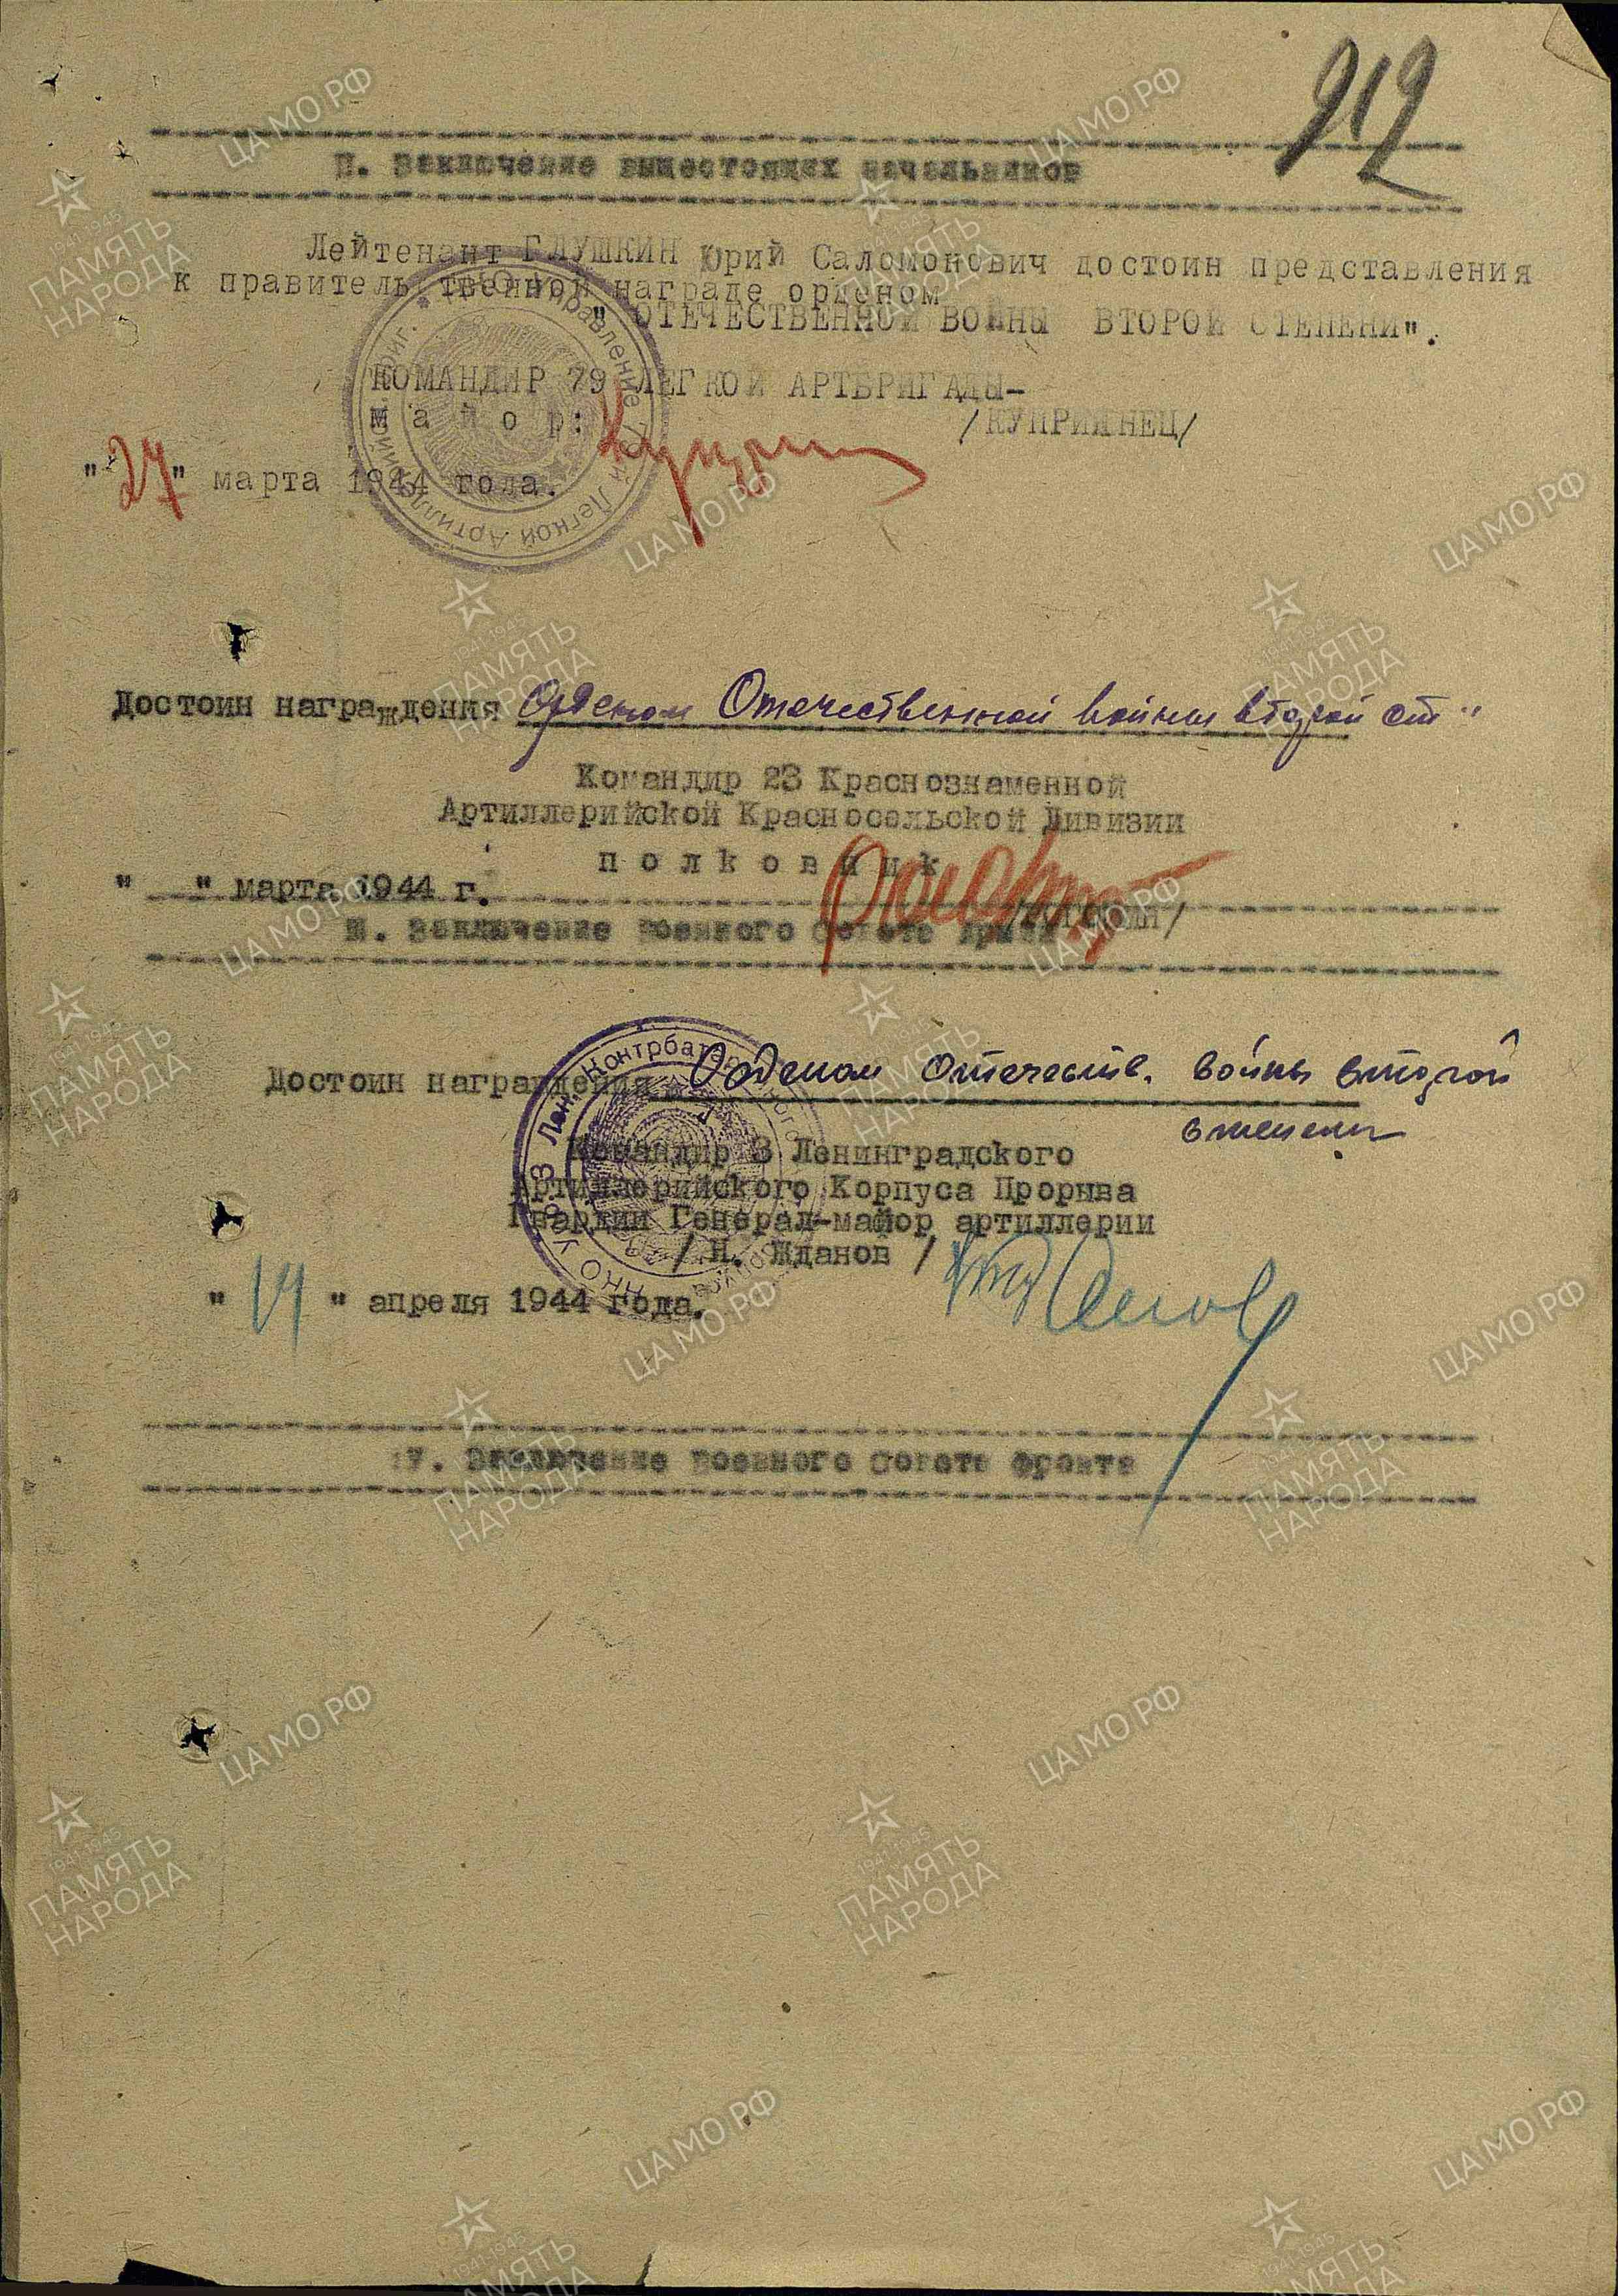 912
П. Заключение вышестоящих начальников
Лейтенант ГЛУШКИН Юрий Саломонович достоин представления
к правительственной награде орденом
" ОТЕЧЕСТВЕННОЙ ВОЙНЫ ВТОРОЙ СТЕПЕНИ".
КОМАНДИР 79 ЛЕГКОЙ АРТБРИГАДЫ-
м а й о р:
/КУПРИЯНЕЦ/
"27" марта 1944 года.
Достоин награждения Орденом Отечественной войны второй ст"
Командир 23 Краснознаменной
Артиллерийской Красносельской Дивизии
п о л к о в н и к
" " марта 1944 г.
Ш. Заключение военного Совета Армии
Достоин награждения Орденом Отечеств. войны второй
степени
Командир 3 Ленинградского
Артиллерийского Корпуса Прорыва
Гвардии Генерал-майор артиллерии
/ Н. Жданов /
" 14 " апреля 1944 года.
У. Заключение военного Совета фронта
ЦАМО РФ
ПАМЯТЬ НАРОДА
1941-1945